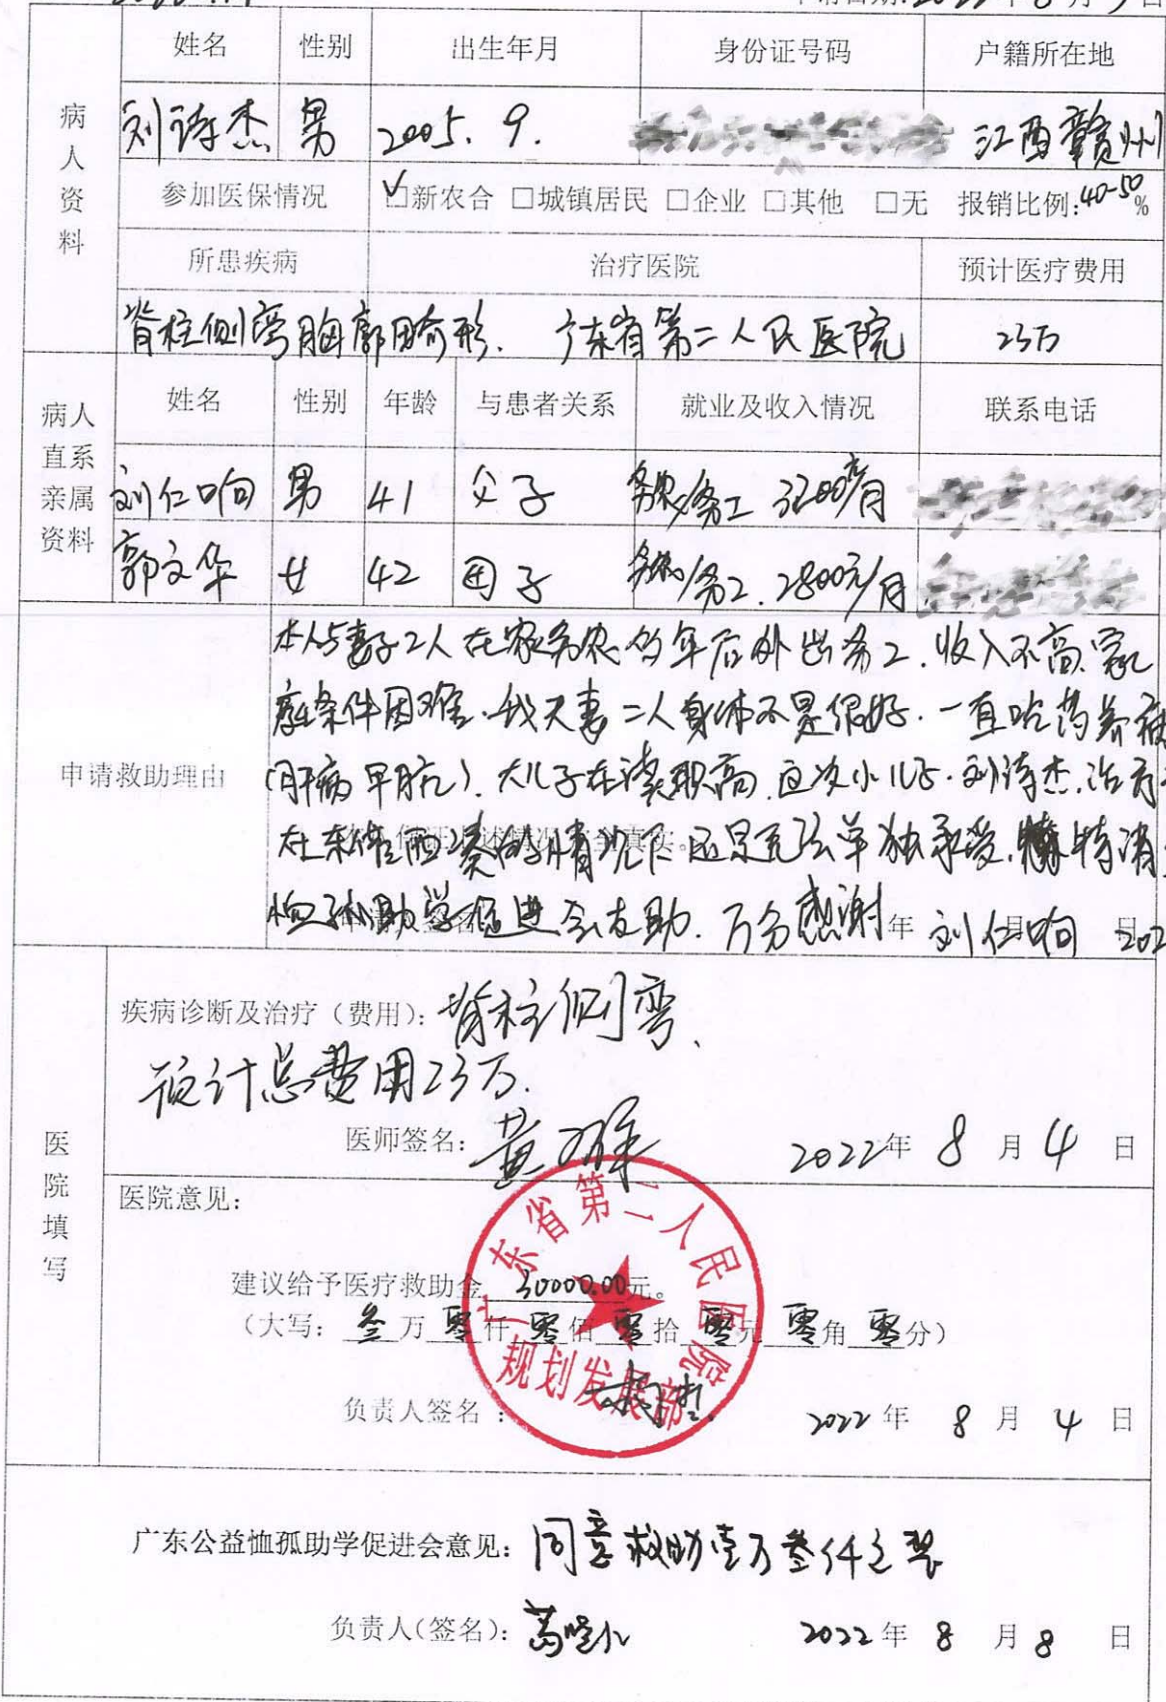 申请日期:2022年8月5日
姓名 性别 出生年月 身份证号码 户籍所在地
病人资料
刘诗杰 男 2005.9. 江西赣州
参加医保情况 ☑新农合 □城镇居民 □企业 □其他 □无 报销比例:40-50%
所患疾病 治疗医院 预计医疗费用
脊柱侧弯胸廓畸形. 广东省第二人民医院 23万
病人直系亲属资料
姓名 性别 年龄 与患者关系 就业及收入情况 联系电话
刘仁响 男 41 父子 务农/务工 3200元/月
郭文华 女 42 母子 务农/务工.2800元/月
申请救助理由
本人与妻子2人在家务农 年后外出务工.收入不高.家
庭条件困难.我夫妻二人身体不是很好.一直吃药养病
(肝病 ).大儿子在读职高.这次小儿子.刘诗杰.治疗
在东 西凑的情况下还是无法单独承受. 特请
恤孤助学促进会支助.万分感谢 年 刘仁响 月 日 202
医院填写
疾病诊断及治疗(费用):脊柱侧弯.
预计总费用23万.
医师签名: 黄 2022年8月4日
医院意见:
建议给予医疗救助金 30000.00元。
(大写: 叁万零仟零佰零拾零元零角零分)
广东省第二人民医院
规划发展部
负责人签名: 2022年8月4日
广东公益恤孤助学促进会意见:同意救助壹万叁仟元整
负责人(签名): 2022年8月8日